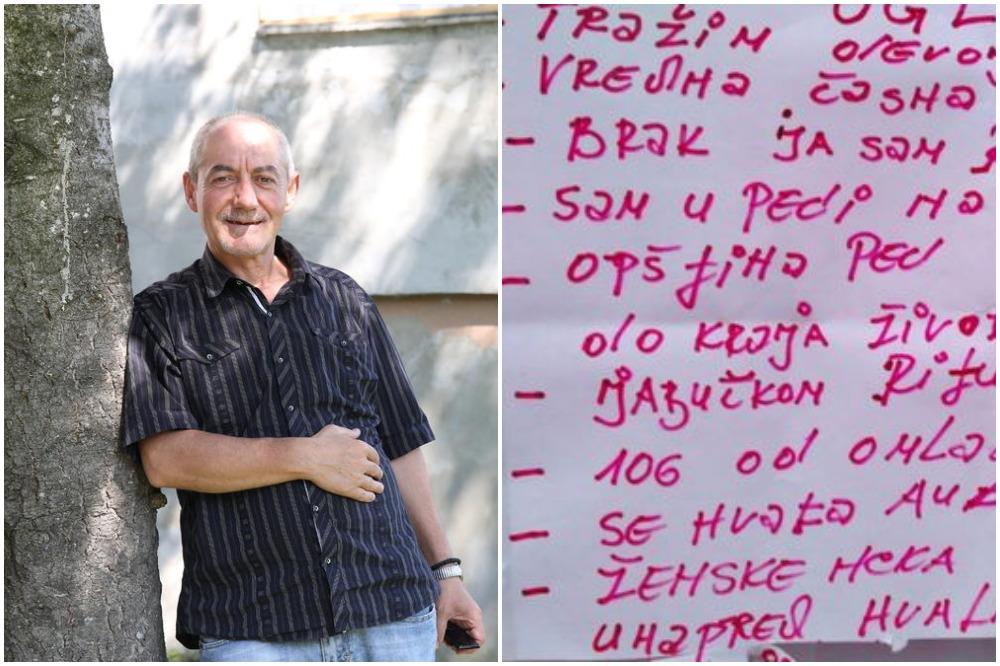 TRAŽIM OGL
VREDNA ČASNA
- BRAK JA SAM
- SAM U PEĆI NA
- OPŠTINA PEĆ
DO KRAJA ŽIVO
- JABUČKOM RITU
- 106 od OMLA
- SE HVATA AU
- ŽENSKE NEKA
UNAPRED HVAL